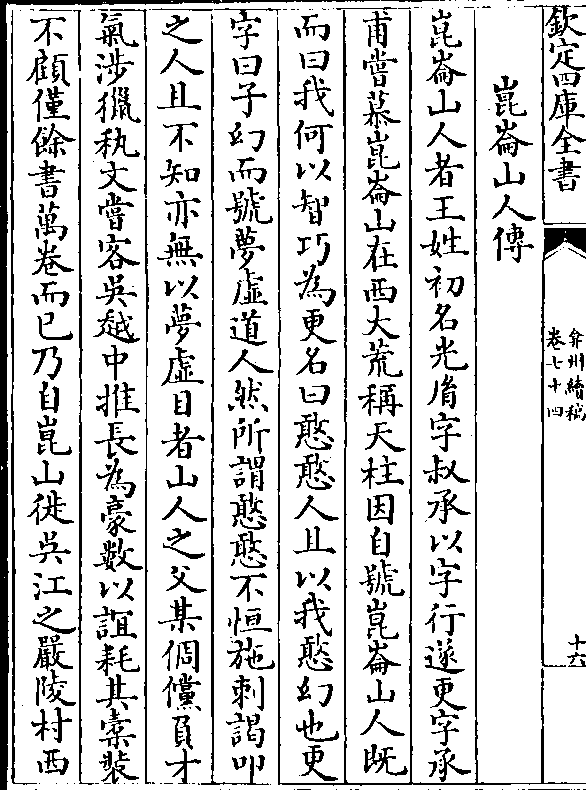 欽定四庫全書
弇州續稿
卷七十四
十六
崑崙山人傳
崑崙山人者王姓初名光胤字叔承以字行遂更字承
甫嘗慕崑崙山在西大荒稱天柱因自號崑崙山人既
而曰我何以智巧為更名曰憨憨人且以我憨幻也更
字曰子幻而號夢虛道人然所謂憨憨不恒施刺謁叩
之人且不知亦無以夢虛目者山人之父某倜儻負才
氣涉獵秇文嘗客吳越中推長為豪數以誼耗其橐裝
不顧僅餘書萬卷而已乃自崑山徙吳江之嚴陵村西